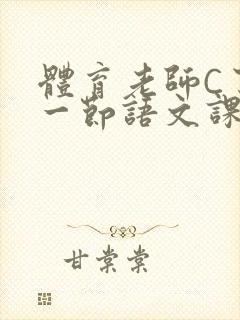 體育老師C
一節語文課
甘棠棠